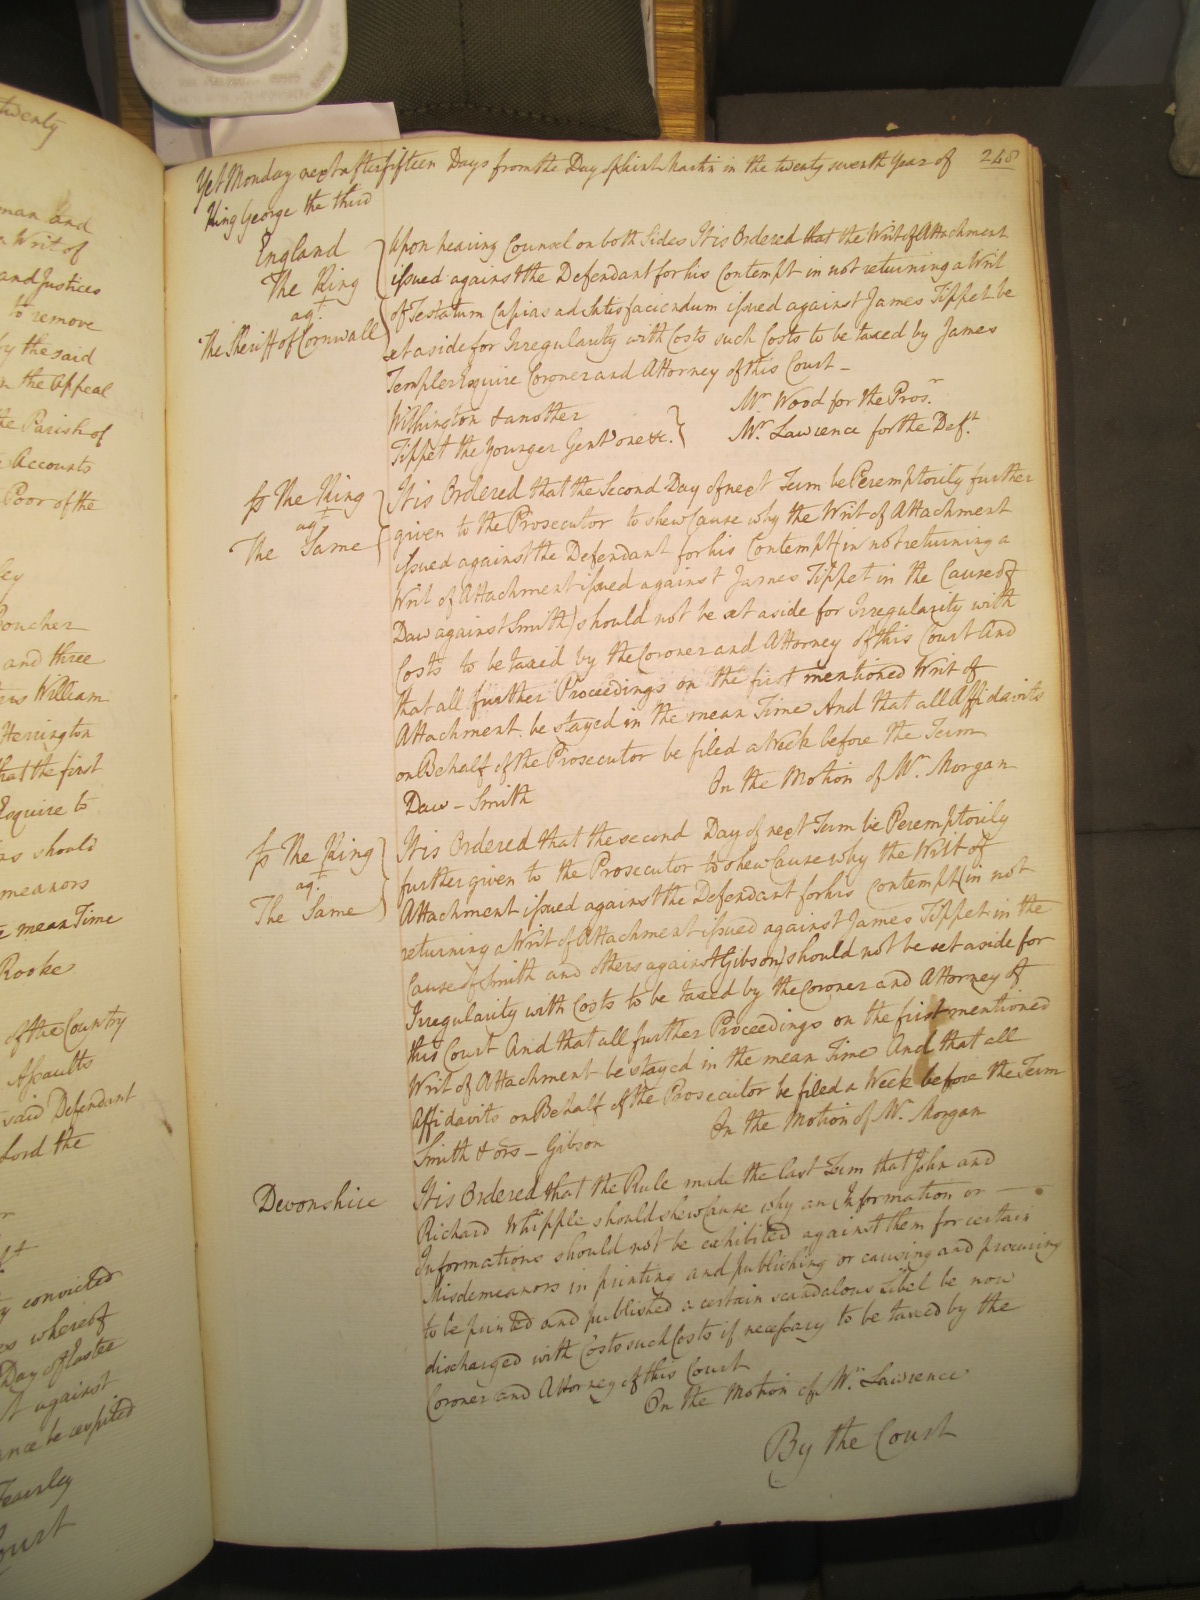 twenty
man and
a Writ of
and Justices
to remove
by the said
n the Appeal
the Parish of
Accounts
Poor of the
ley
Voucher
and three
William
Herrington
that the first
Esquire to
as should
meanors
e mean Time
Rooke
of the Country
Assaults
said Defendant
Lord the
y convicted
whereof
Day of Easter
against
ance be respited
Fearsley
Court
Yet Monday next after fifteen Days from the Day of Saint Martin in the twenty seventh Year of 248
King George the third
England
The King
agt
The Sheriff of Cornwall
Upon hearing Counsel on both Sides It is Ordered that the Writ of Attachment
issued against the Defendant for his Contempt in not returning a Writ
of Testatum Capias ad Satisfaciendum issued against James Tippet be
set aside for Irregularity with Costs such Costs to be taxed by James
Templer Esquire Coroner and Attorney of this Court –
Withington & another
Tippet the Younger Gent one &c.
Mr. Wood for the Pros.r
Mr. Lawrence for the Deft.
The King
agt
The Same
It is Ordered that the Second Day of next Term be Peremptorily further
given to the Prosecutor to shew Cause why the Writ of Attachment
issued against the Defendant for his Contempt (in not returning a
Writ of Attachment issued against James Tippet in the Cause of
Daw against Smith) should not be set aside for Irregularity with
Costs to be taxed by the Coroner and Attorney of this Court And
that all further Proceedings on the first mentioned Writ of
Attachment be stayed in the mean Time And that all Affidavits
on Behalf of the Prosecutor be filed a Week before the Term
Daw – Smith
On the Motion of Mr. Morgan
The King
agt.
The Same
It is Ordered that the second Day of next Term be Peremptorily
further given to the Prosecutor to shew Cause why the Writ of
Attachment issued against the Defendant for his Contempt (in not
returning a Writ of Attachment issued against James Tippet in the
Cause of Smith and others against Gibson) should not be set aside for
Irregularity with Costs to be taxed by the Coroner and Attorney of
this Court And that all further Proceedings on the first mentioned
Writ of Attachment be stayed in the mean Time And that all
Affidavits on Behalf of the Prosecutor be filed a Week before the Term
Smith & ors – Gibson
On the Motion of Mr. Morgan
Devonshire
It is Ordered that the Rule made the last Term that John and
Richard Whipple should shew Cause why an Information or
Informations should not be exhibited against them for certain
Misdemeanors in printing and publishing or causing and procuring
to be printed and published a certain scandalous Libel be now
discharged with Costs such Costs if necessary to be taxed by the
Coroner and Attorney of this Court
On the Motion of Mr. Lawrence
By the Court